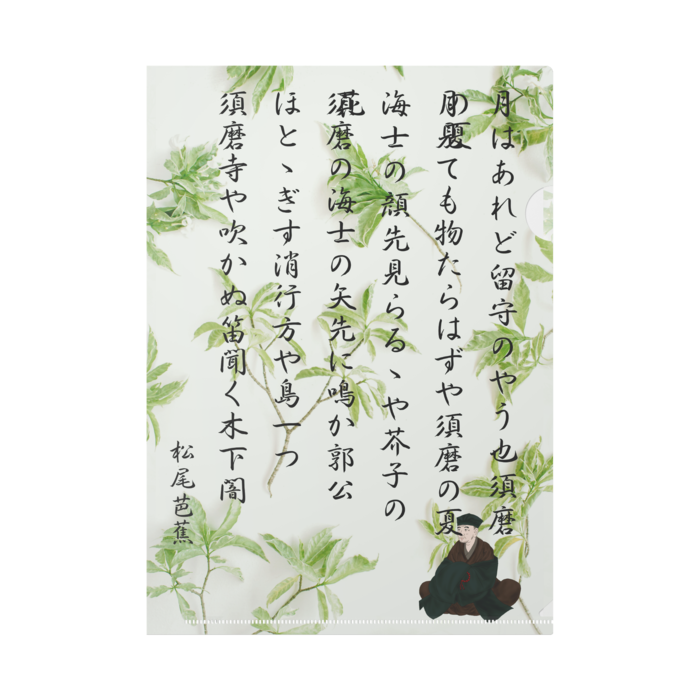 月はあれど留守のやう也須磨
の夏
月見ても物たらはずや須磨の夏
海士の顔先見らるゝや芥子の
花
須磨の海士の矢先に鳴か郭公
ほとゝぎす消行方や島一つ
須磨寺や吹かぬ笛聞く木下闇
松尾芭蕉